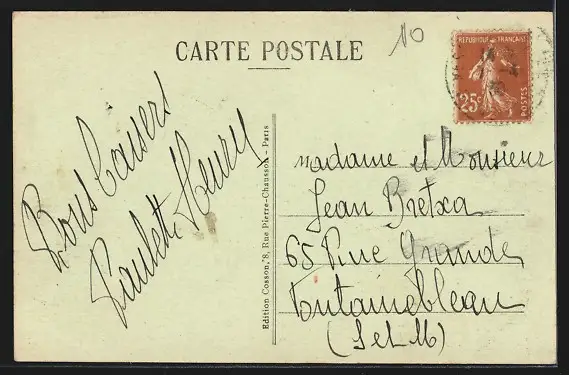 CARTE POSTALE
10
REPUBLIQUE FRANÇAISE
25c
POSTES
Bons baisers
Paulette Henry
Edition Cosson, 8, Rue Pierre-Chausson - Paris
madame et Monsieur
Jean Bretxa
65 Rue Grande
Fontainebleau
(S et M)